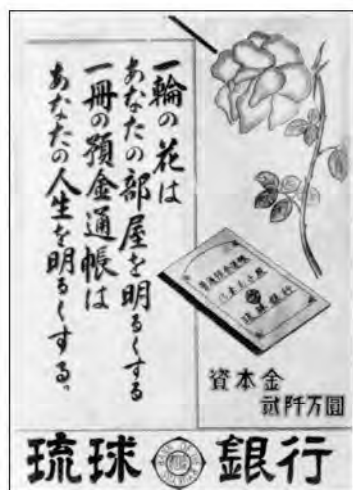 一輪の花は
あなたの部屋を明るくする
一冊の預金通帳は
あなたの人生を明るくする。
普通預金通帳
琉球銀行
資本金
弐阡万圓
琉球 銀行